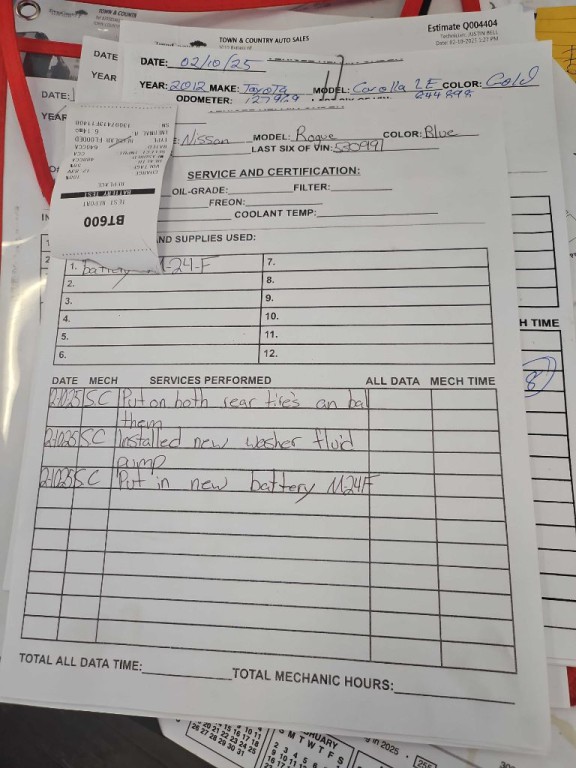 TOWN & COUNTRY AUTO SALES
Estimate Q004404
DATE
YEAR
DATE: 02/10/25
YEAR: 2012 MAKE: Toyota MODEL: Corolla LE COLOR: Gold
ODOMETER: 127969
244898
DATE:
YEAR
Nissan MODEL: Rogue COLOR: Blue
LAST SIX OF VIN: 530991
SERVICE AND CERTIFICATION:
OIL-GRADE: FILTER:
FREON:
COOLANT TEMP:
BT600
TEST REPORT
BATTERY TEST
REPLACE
AND SUPPLIES USED:
1. battery M-24-F 7.
2. 8.
3. 9.
4. 10.
5. 11.
6. 12.
H TIME
8
DATE MECH SERVICES PERFORMED ALL DATA MECH TIME
2-1025 SC Put on both rear tires an bal
them
2-1025 SC Installed new washer fluid
pump
2-1025 SC Put in new battery M24F
TOTAL ALL DATA TIME: TOTAL MECHANIC HOURS:
M T W T F S